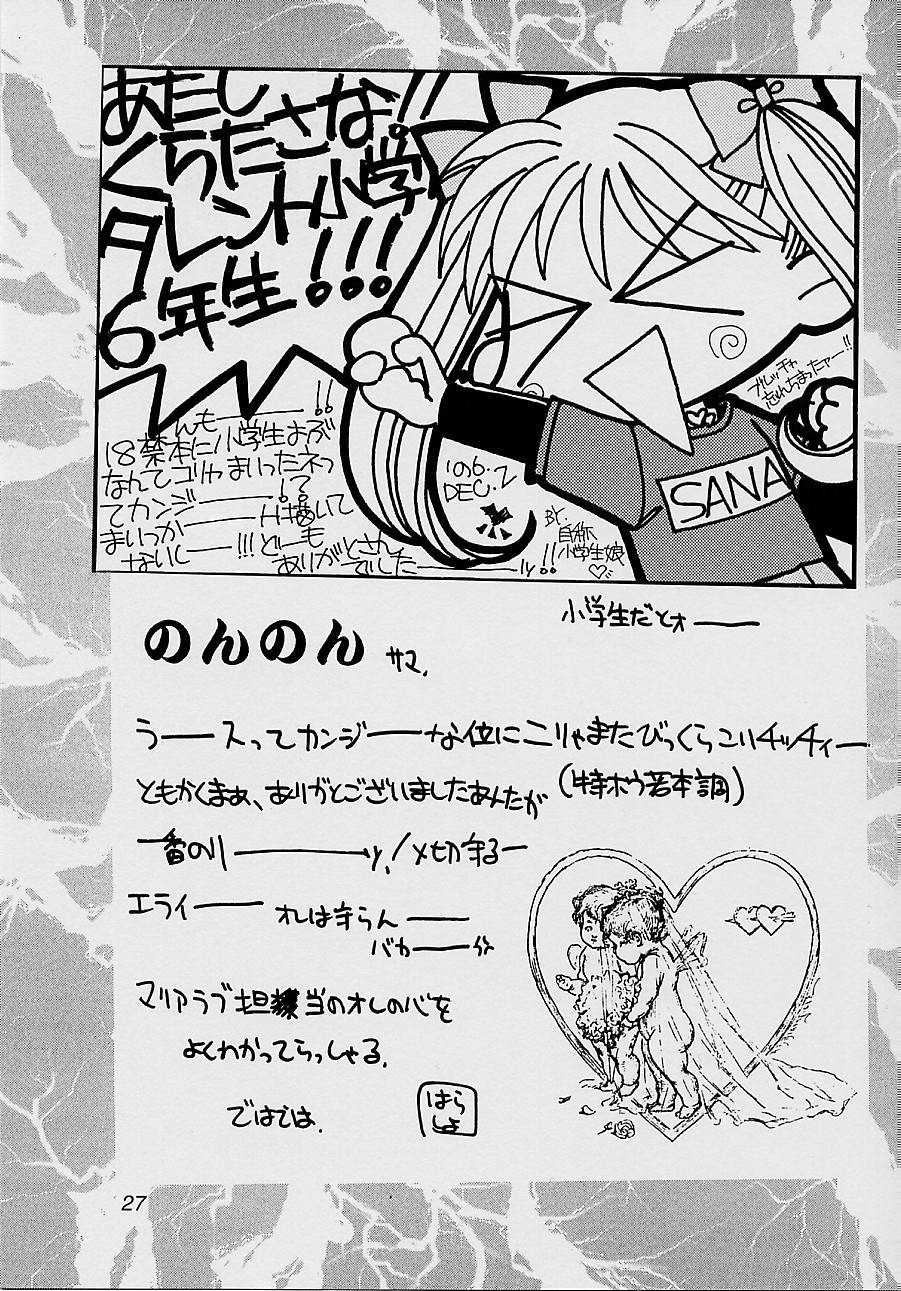 あたし
くらたさな!!
タレント小学
6年生!!!
んもー!!
18禁本に小学生よぶ
なんてコリャまいったネっ
てカンジー!?
まいっかーH描いて
ないしー!!!どーも
ありがとさん
でしたーッ!!
'96.
DEC.2
BY
自称
小学生娘♡
!!
SANA
忘れちまったァー!!
小学生だとォー
のんのんサマ.
うースってカンジーな位にこりゃまたびっくらこいチッチィー
ともかくまぁ、ありがとございましたあんたが(特ボウ若本調)
一番のりーッ!〆切守るー
エライー オレは守らんー
バカー
マリアラブ担当のオレの心を
よくわかってらっしゃる.
ではでは.
はら
しょ
27